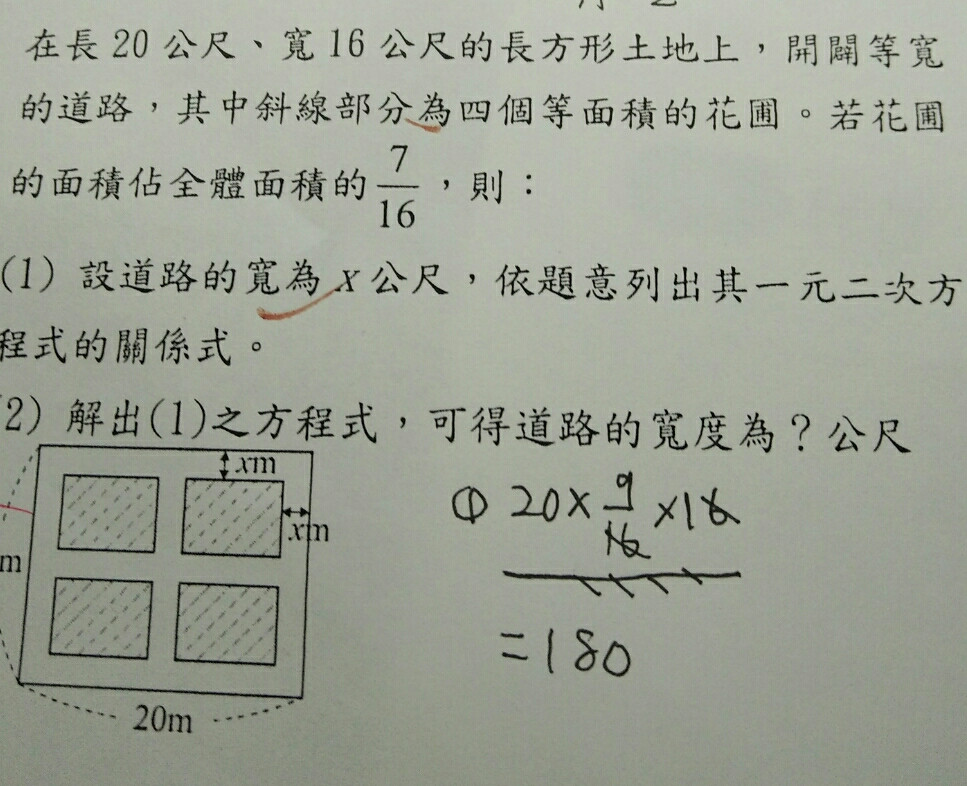 在長 20 公尺、寬 16 公尺的長方形土地上，開闢等寬
的道路，其中斜線部分為四個等面積的花圃。若花圃
的面積佔全體面積的 7/16，則：
(1) 設道路的寬為 x 公尺，依題意列出其一元二次方
程式的關係式。
(2) 解出(1)之方程式，可得道路的寬度為？公尺
xm
xm
m
20m
① 20 × 9/16 × 16
=180